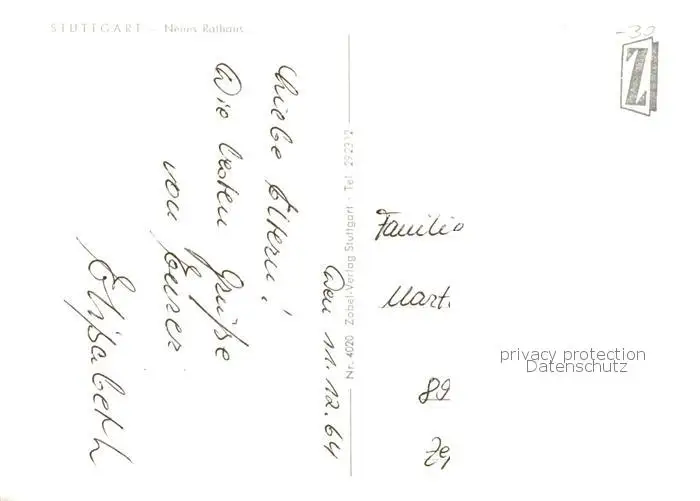 STUTTGART - Neues Rathaus
-30
Z
Den 11.12.64
Liebe Eltern!
Die besten Grüße
von Eurer
Elisabeth
Nr. 4020 Zobel-Verlag Stuttgart · Tel. 292312
Familie
Mart.
89
privacy protection
Datenschutz